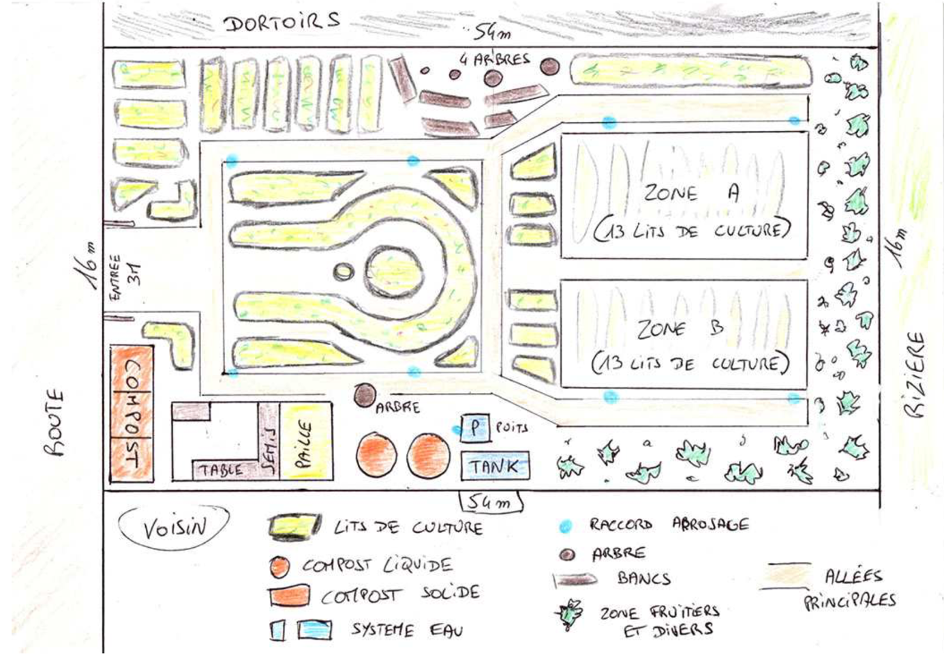 DORTOIRS
54m
4 ARBRES
ZONE A
(13 LITS DE CULTURE)
16m
ENTRÉE
3M
16m
ZONE B
(13 LITS DE CULTURE)
ROUTE
RIZIÈRE
COMPOST
ARBRE
TABLE
SEMIS
PAILLE
P
PUITS
TANK
54m
VOISIN
LITS DE CULTURE
COMPOST LIQUIDE
COMPOST SOLIDE
SYSTEME EAU
RACCORD ARROSAGE
ARBRE
BANCS
ZONE FRUITIERS
ET DIVERS
ALLÉES
PRINCIPALES